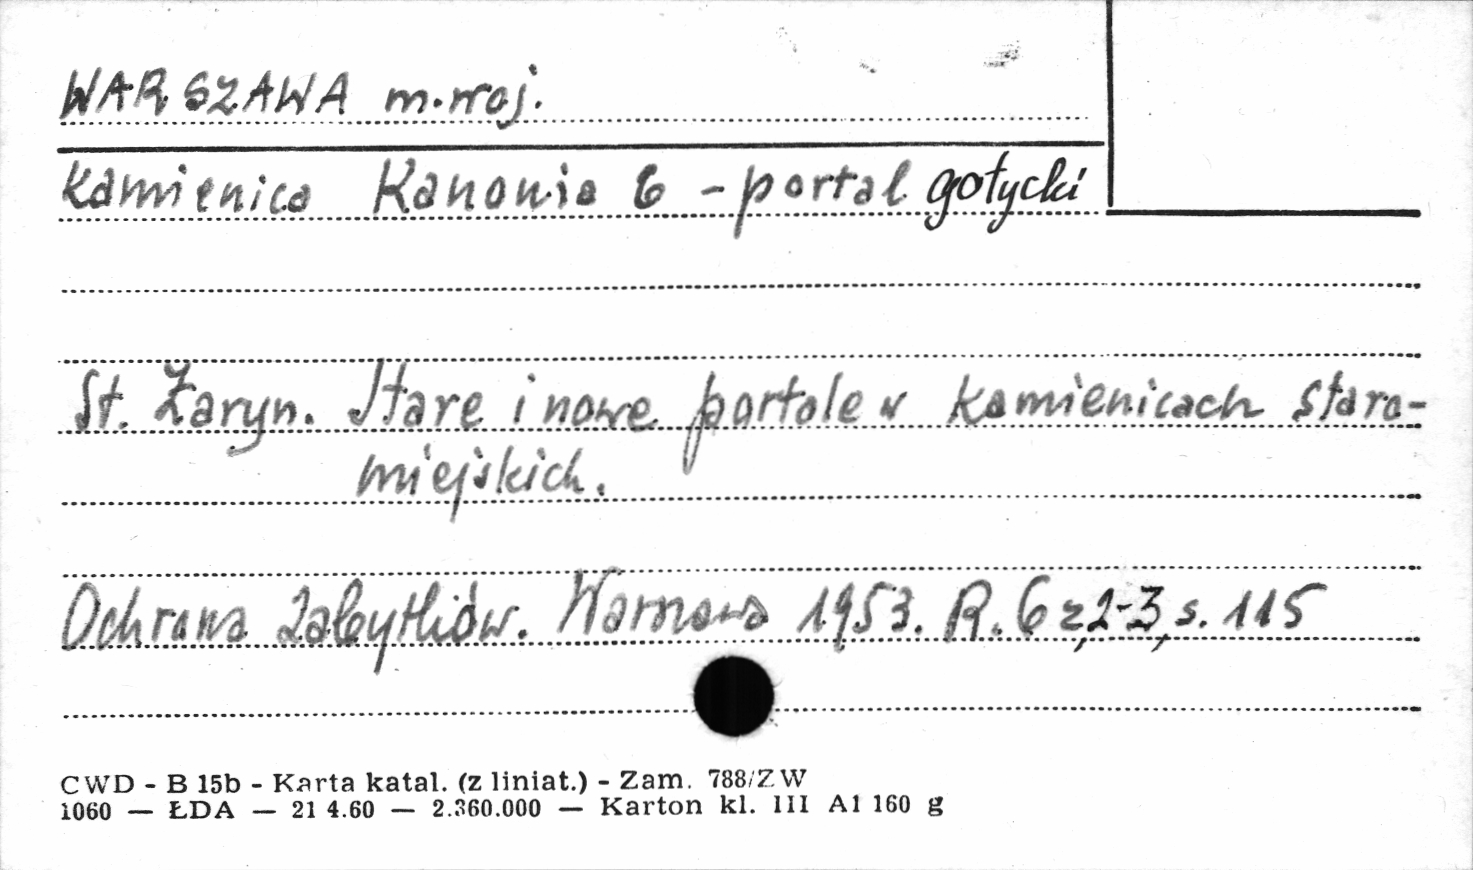 WARSZAWA m.woj.
Kamienica Kanonia 6 - portal gotycki
St. Żaryn. Stare i nowe portale w kamienicach staro-
miejskich.
Ochrona Zabytków. Warszawa 1953. R. 6 z, 2-3, s. 115
CWD - B 15b - Karta katal. (z liniat.) - Zam. 788/ZW
1060 — ŁDA — 21 4.60 — 2.360.000 — Karton kl. III A1 160 g